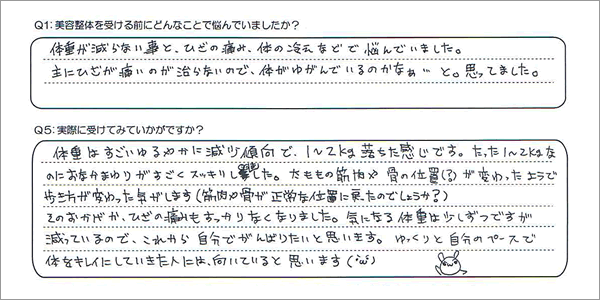 Q1：美容整体を受ける前にどんなことで悩んでいましたか？
体重が減らない事と、ひざの痛み、体の冷えなどで悩んでいました。
主にひざが痛いのが治らないので、体がゆがんでいるのかなぁ… と。思ってました。
Q5：実際に受けてみていかがですか？
体重はすごいゆるやかに減少傾向で、1～2kg落ちた感じです。たった1～2kgな
のにおなかまわりがすごくスッキリしました。太ももの筋肉や骨の位置(?)が変わったようで
歩き方が変わった気がします(筋肉や骨が正常な位置に戻ったのでしょうか?)
そのおかげか、ひざの痛みもすっかりなくなりました。気になる体重は少しずつですが
減っているので、これから自分でがんばりたいと思います。ゆっくりと自分のペースで
体をキレイにしていきたい人には、向いていると思います(´ω`)